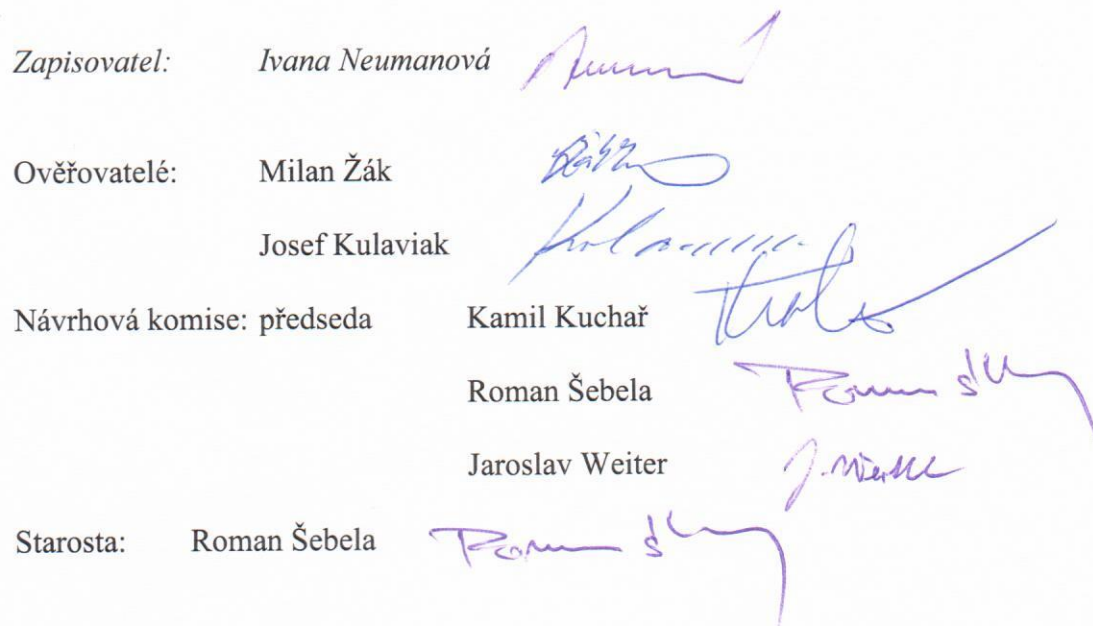 Zapisovatel: Ivana Neumanová
Ověřovatelé: Milan Žák
Josef Kulaviak
Návrhová komise: předseda Kamil Kuchař
Roman Šebela
Jaroslav Weiter
Starosta: Roman Šebela